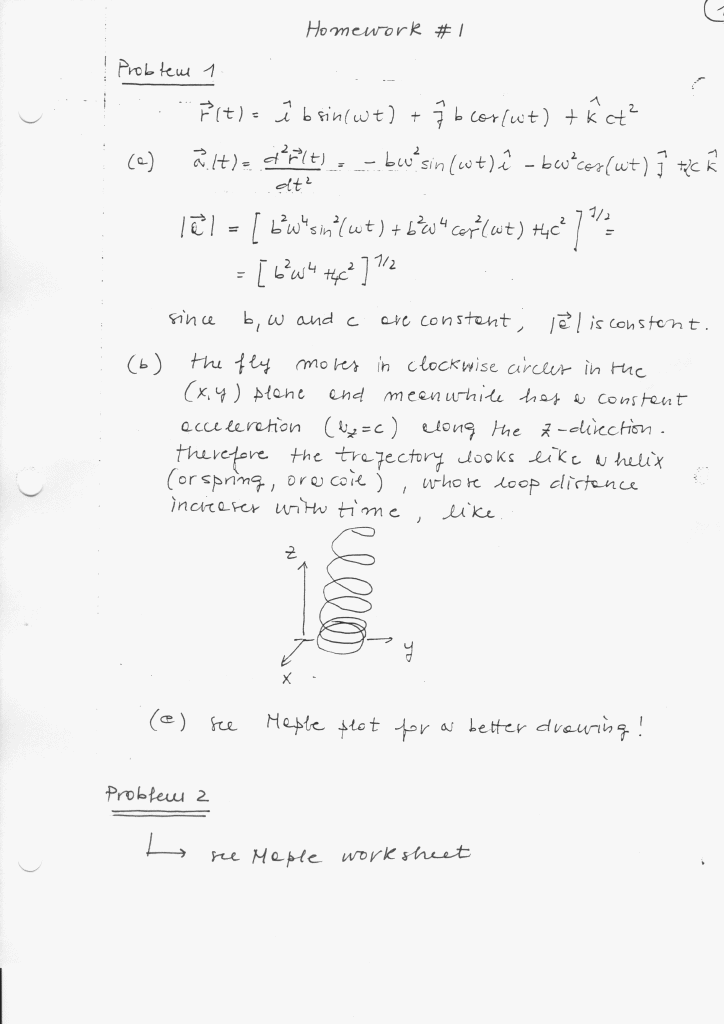 Homework #1
Problem 1
r⃗(t) = î b sin(ωt) + ĵ b cos(ωt) + k̂ ct²
(a) a⃗(t) = d²r⃗(t)/dt² = - bω² sin(ωt) î - bω² cos(ωt) ĵ + 2c k̂
|a⃗| = [ b²ω⁴ sin²(ωt) + b²ω⁴ cos²(ωt) + 4c² ]^1/2 =
= [ b²ω⁴ + 4c² ]^1/2
since b, ω and c are constant, |a⃗| is constant.
(b) the fly moves in clockwise circles in the
(x,y) plane and meanwhile has a constant
acceleration ( =c) along the z-direction.
therefore the trajectory looks like a helix
(or spring, or a coil), whose loop distance
increases with time, like
z
y
x
(c) see Maple plot for a better drawing!
Problem 2
↳ see Maple worksheet